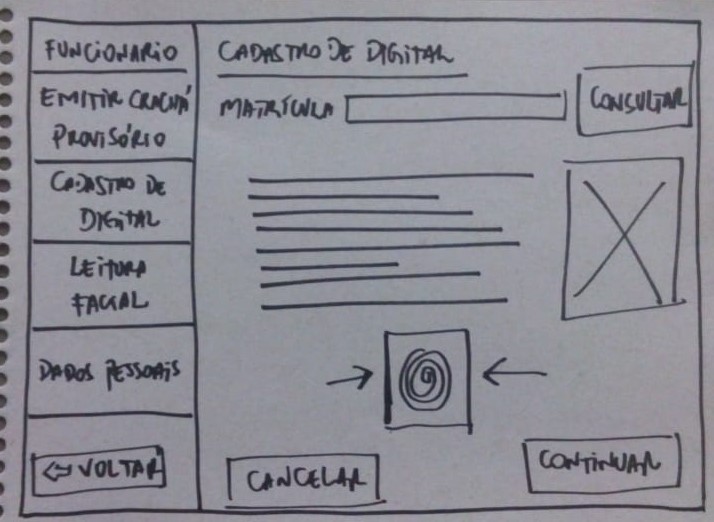 FUNCIONARIO
EMITIR CRACHÁ
PROVISÓRIO
CADASTRO DE
DIGITAL
LEITURA
FACIAL
DADOS PESSOAIS
⇦ VOLTAR
CADASTRO DE DIGITAL
MATRÍCULA
CONSULTAR
CANCELAR
CONTINUAR